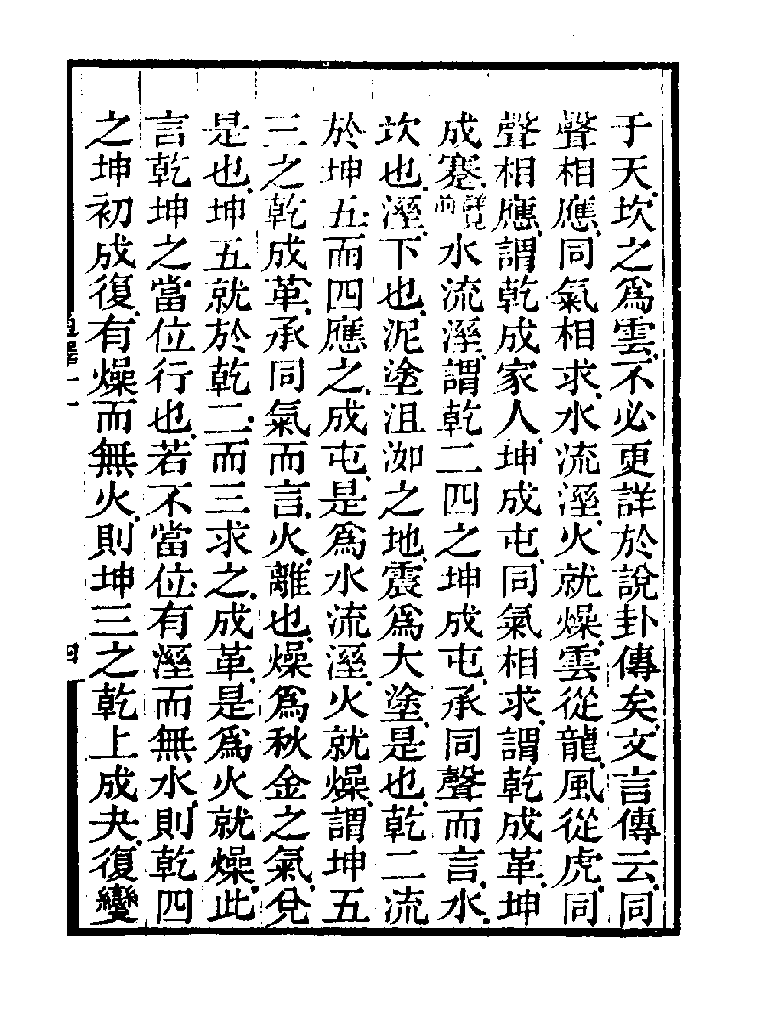 于天坎之爲雲不必更詳於說卦傳矣文言傳云同
聲相應同氣相求水流溼火就燥雲從龍風從虎同
聲相應謂乾成家人坤成屯同氣相求謂乾成革坤
成蹇詳見前水流溼謂乾二四之坤成屯承同聲而言水
坎也溼下也泥塗沮洳之地震爲大塗是也乾二流
於坤五而四應之成屯是爲水流溼火就燥謂坤五
三之乾成革承同氣而言火離也燥爲秋金之氣兌
是也坤五就於乾二而三求之成革是爲火就燥此
言乾坤之當位行也若不當位有溼而無水則乾四
之坤初成復有燥而無火則坤三之乾上成夬復變
四